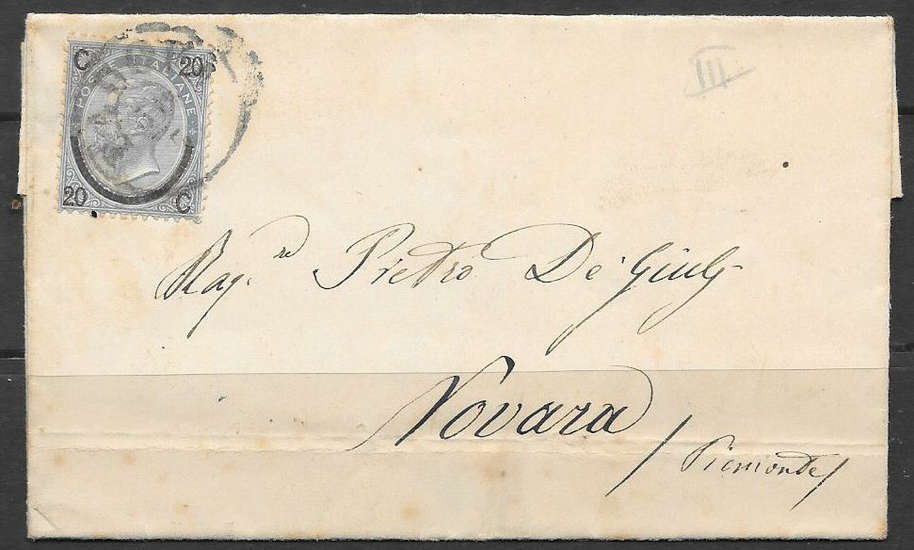 C 20
POSTE ITALIANE
20 C
III
Rag.re Pietro De Giulj
Novara
/ Piemonte /